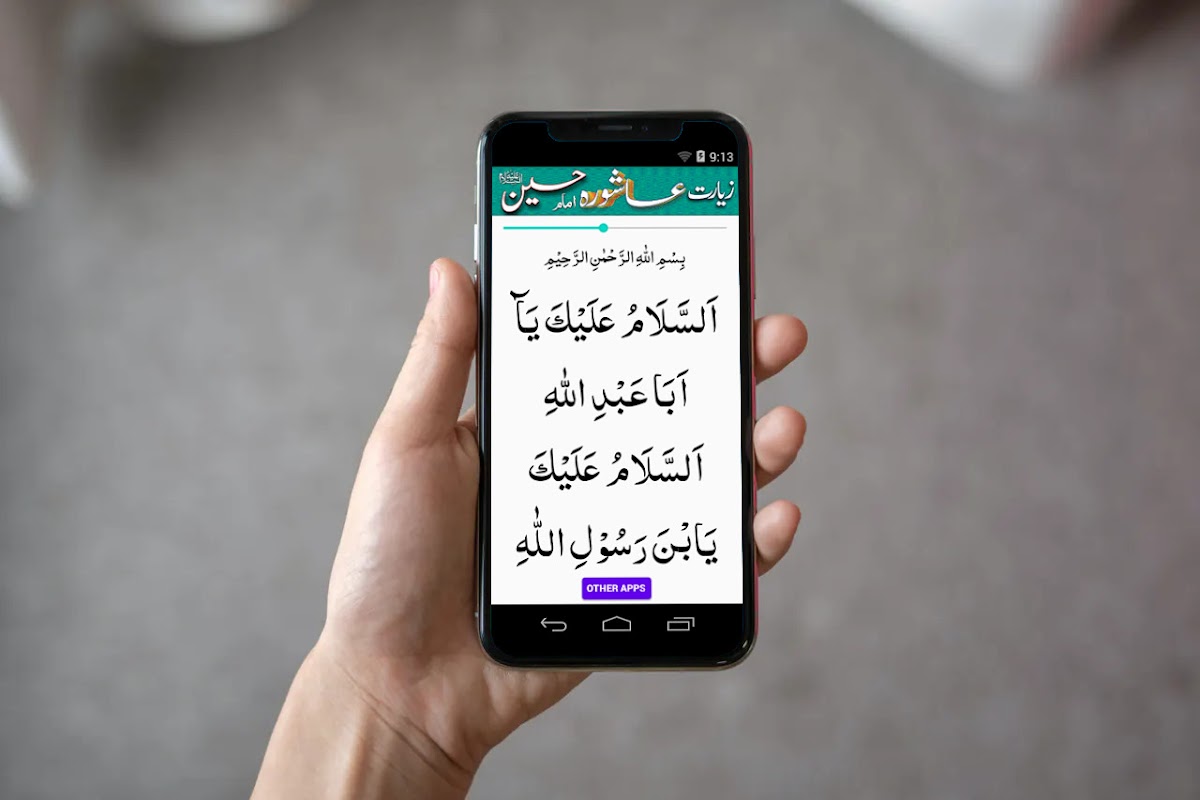 9:13
زیارت عاشورہ امام حسین
بِسْمِ اللهِ الرَّحْمٰنِ الرَّحِيْمِ
اَلسَّلَامُ عَلَيْكَ يَآ
اَبَا عَبْدِ اللهِ
اَلسَّلَامُ عَلَيْكَ
يَابْنَ رَسُوْلِ اللهِ
OTHER APPS